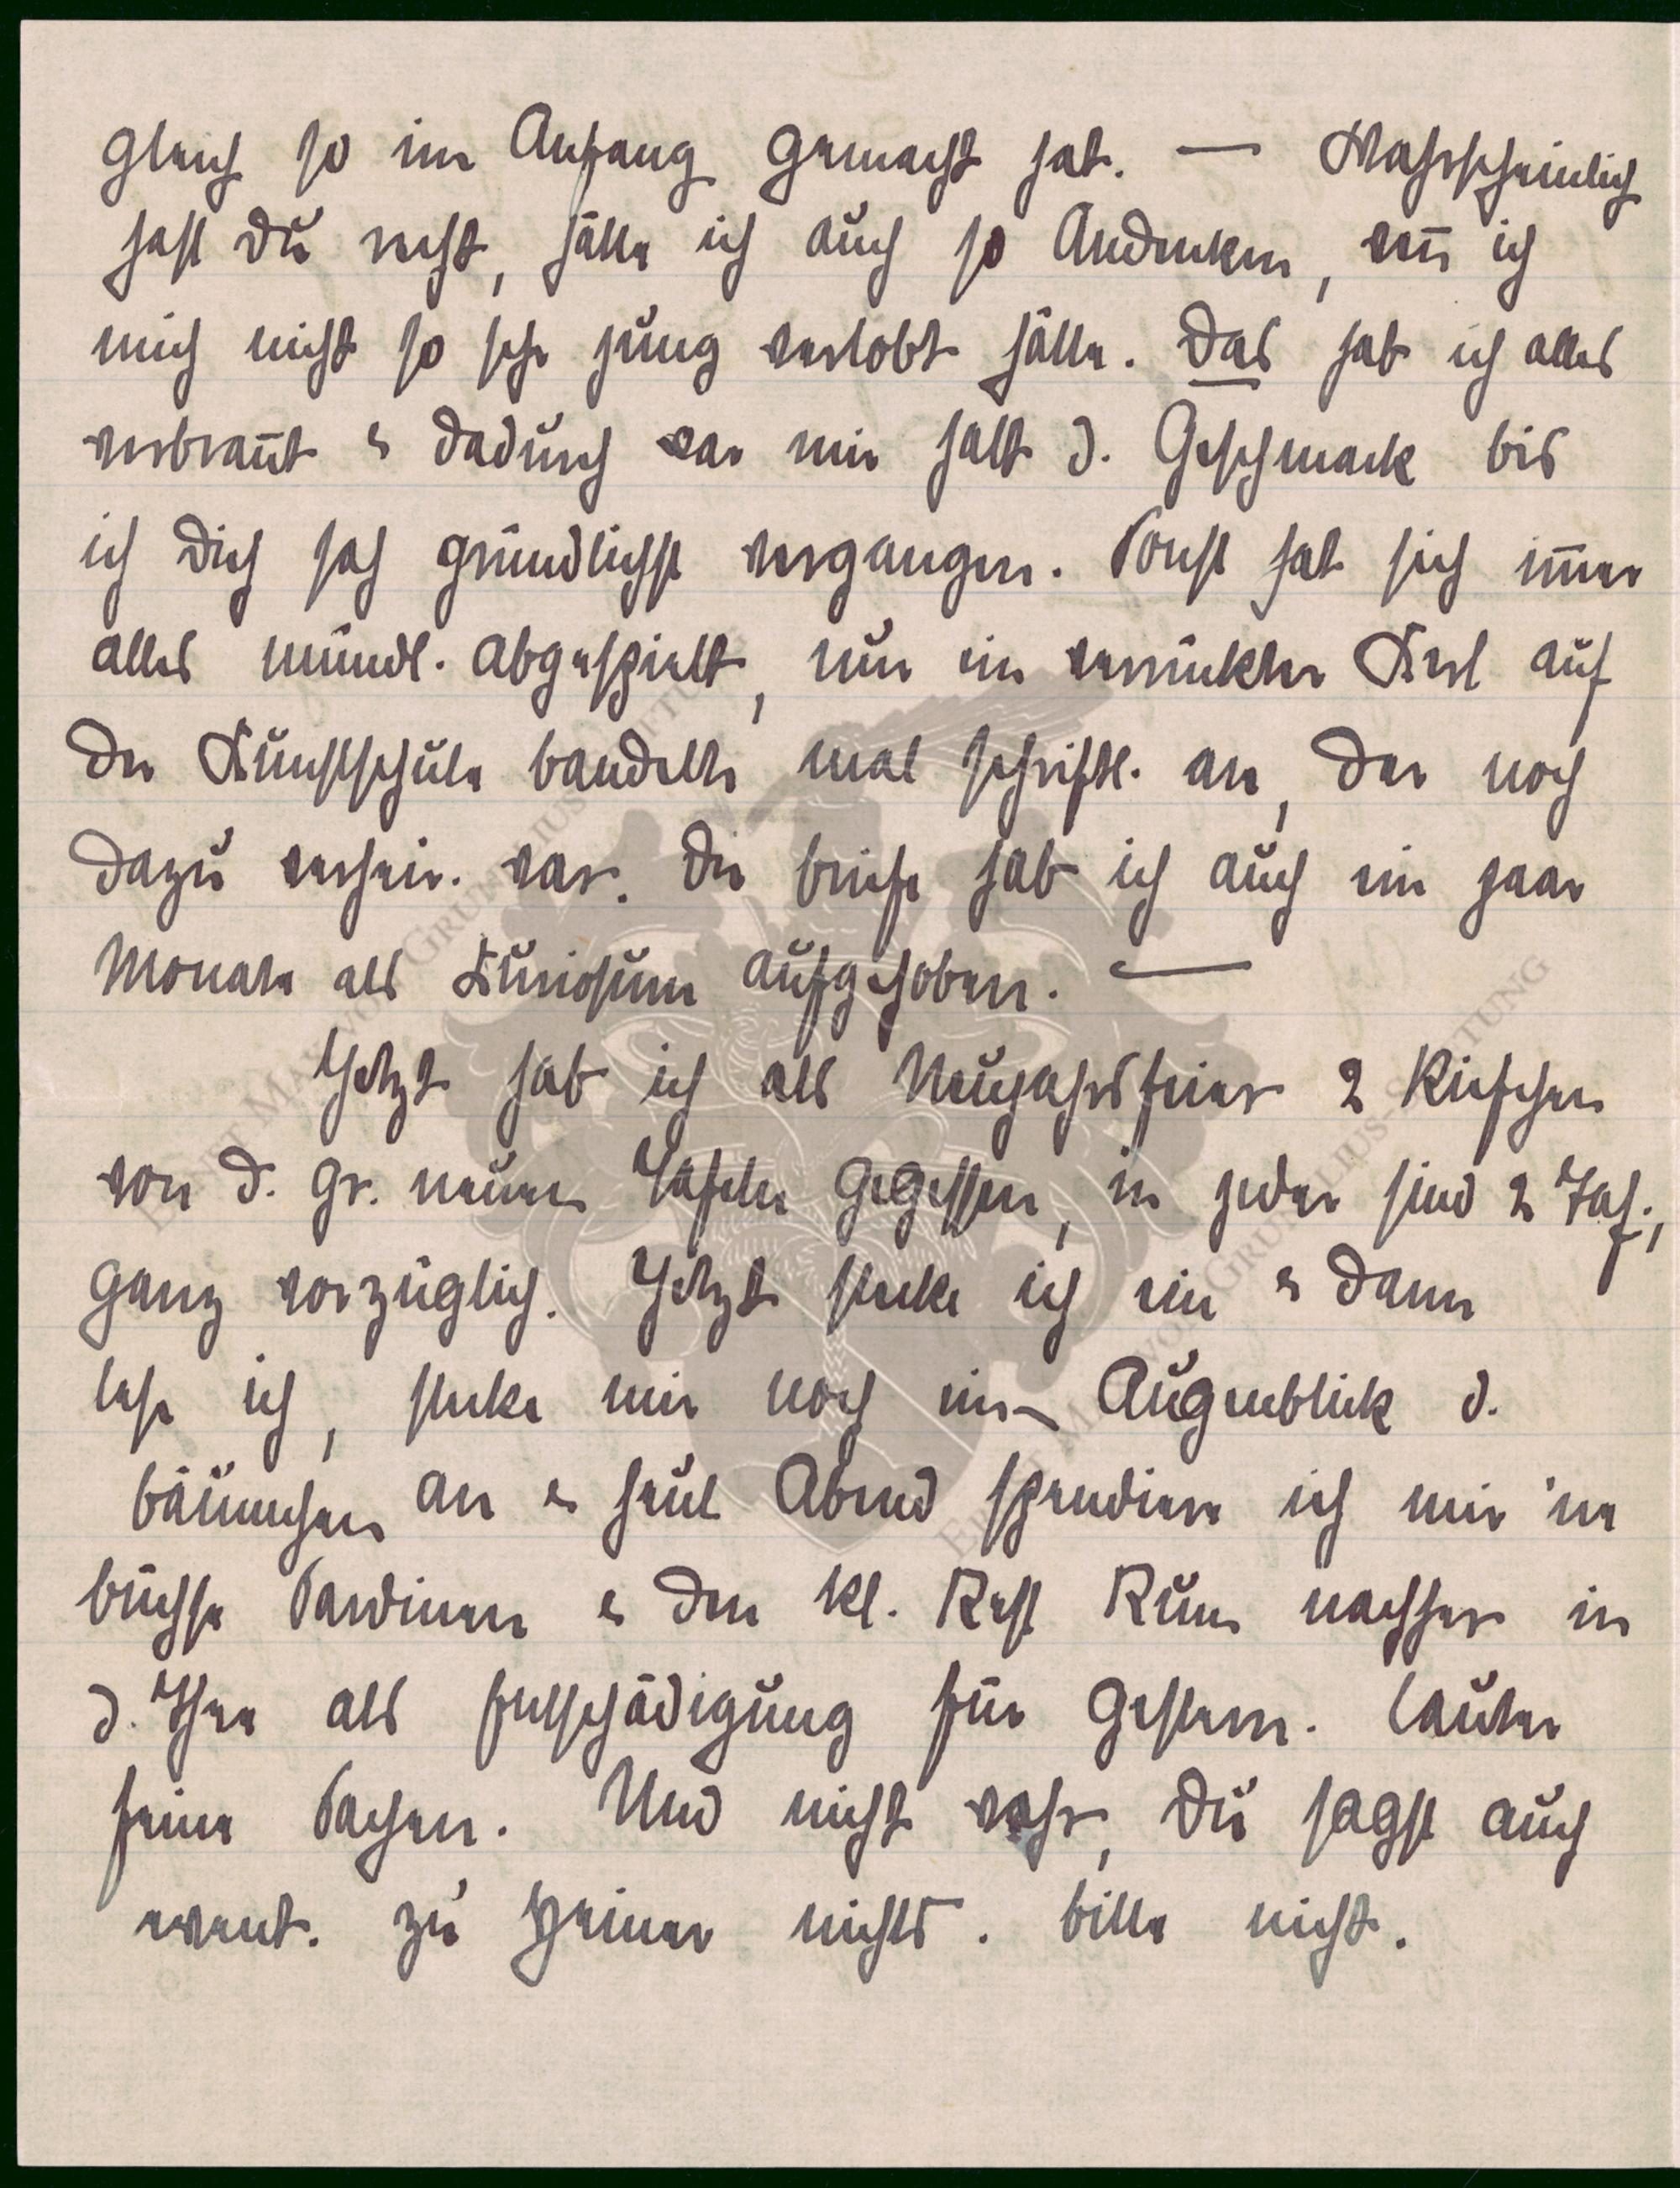 gleich so im Anfang gemacht hat. — Wahrscheinlich
hast du recht, hätte ich auch so Andenken, wen̄ ich
mich nicht so sehr jung verlobt hätte. Das hab ich alles
verbran̄t & dadurch war mir halt d. Geschmack bis
ich Dich sah gründlichst vergangen. Sonst hat sich im̄er
alles mündl. abgespielt, nur ein verrückter Kerl auf
der Kunstschule bandelte mal schriftl. an, der noch
dazu verheir. war. Die Briefe hab ich auch ein paar
Monate als Kuriosum aufgehoben. —
Jetzt hab ich als Neujahrsfeier 2 Riefchen
von d. gr. neuen Tafeln gegessen, in jeder sind 2 Taf.,
ganz vorzüglich. Jetzt stecke ich ein & dann
lese ich, stecke mir noch ein Augenblick d.
Bäumchen an & heut Abend spendiere ich mir 'ne
Büchse Sardinen & den kl. Rest Rum nachher in
d. Thee als Entschädigung für gestern. Lauter
feine Sachen. Und nicht wahr, Du sagst auch
event. zu Heiner nichts. Bitte nicht.
ERNST MARVON GRUNELIUS-STIFTUNG